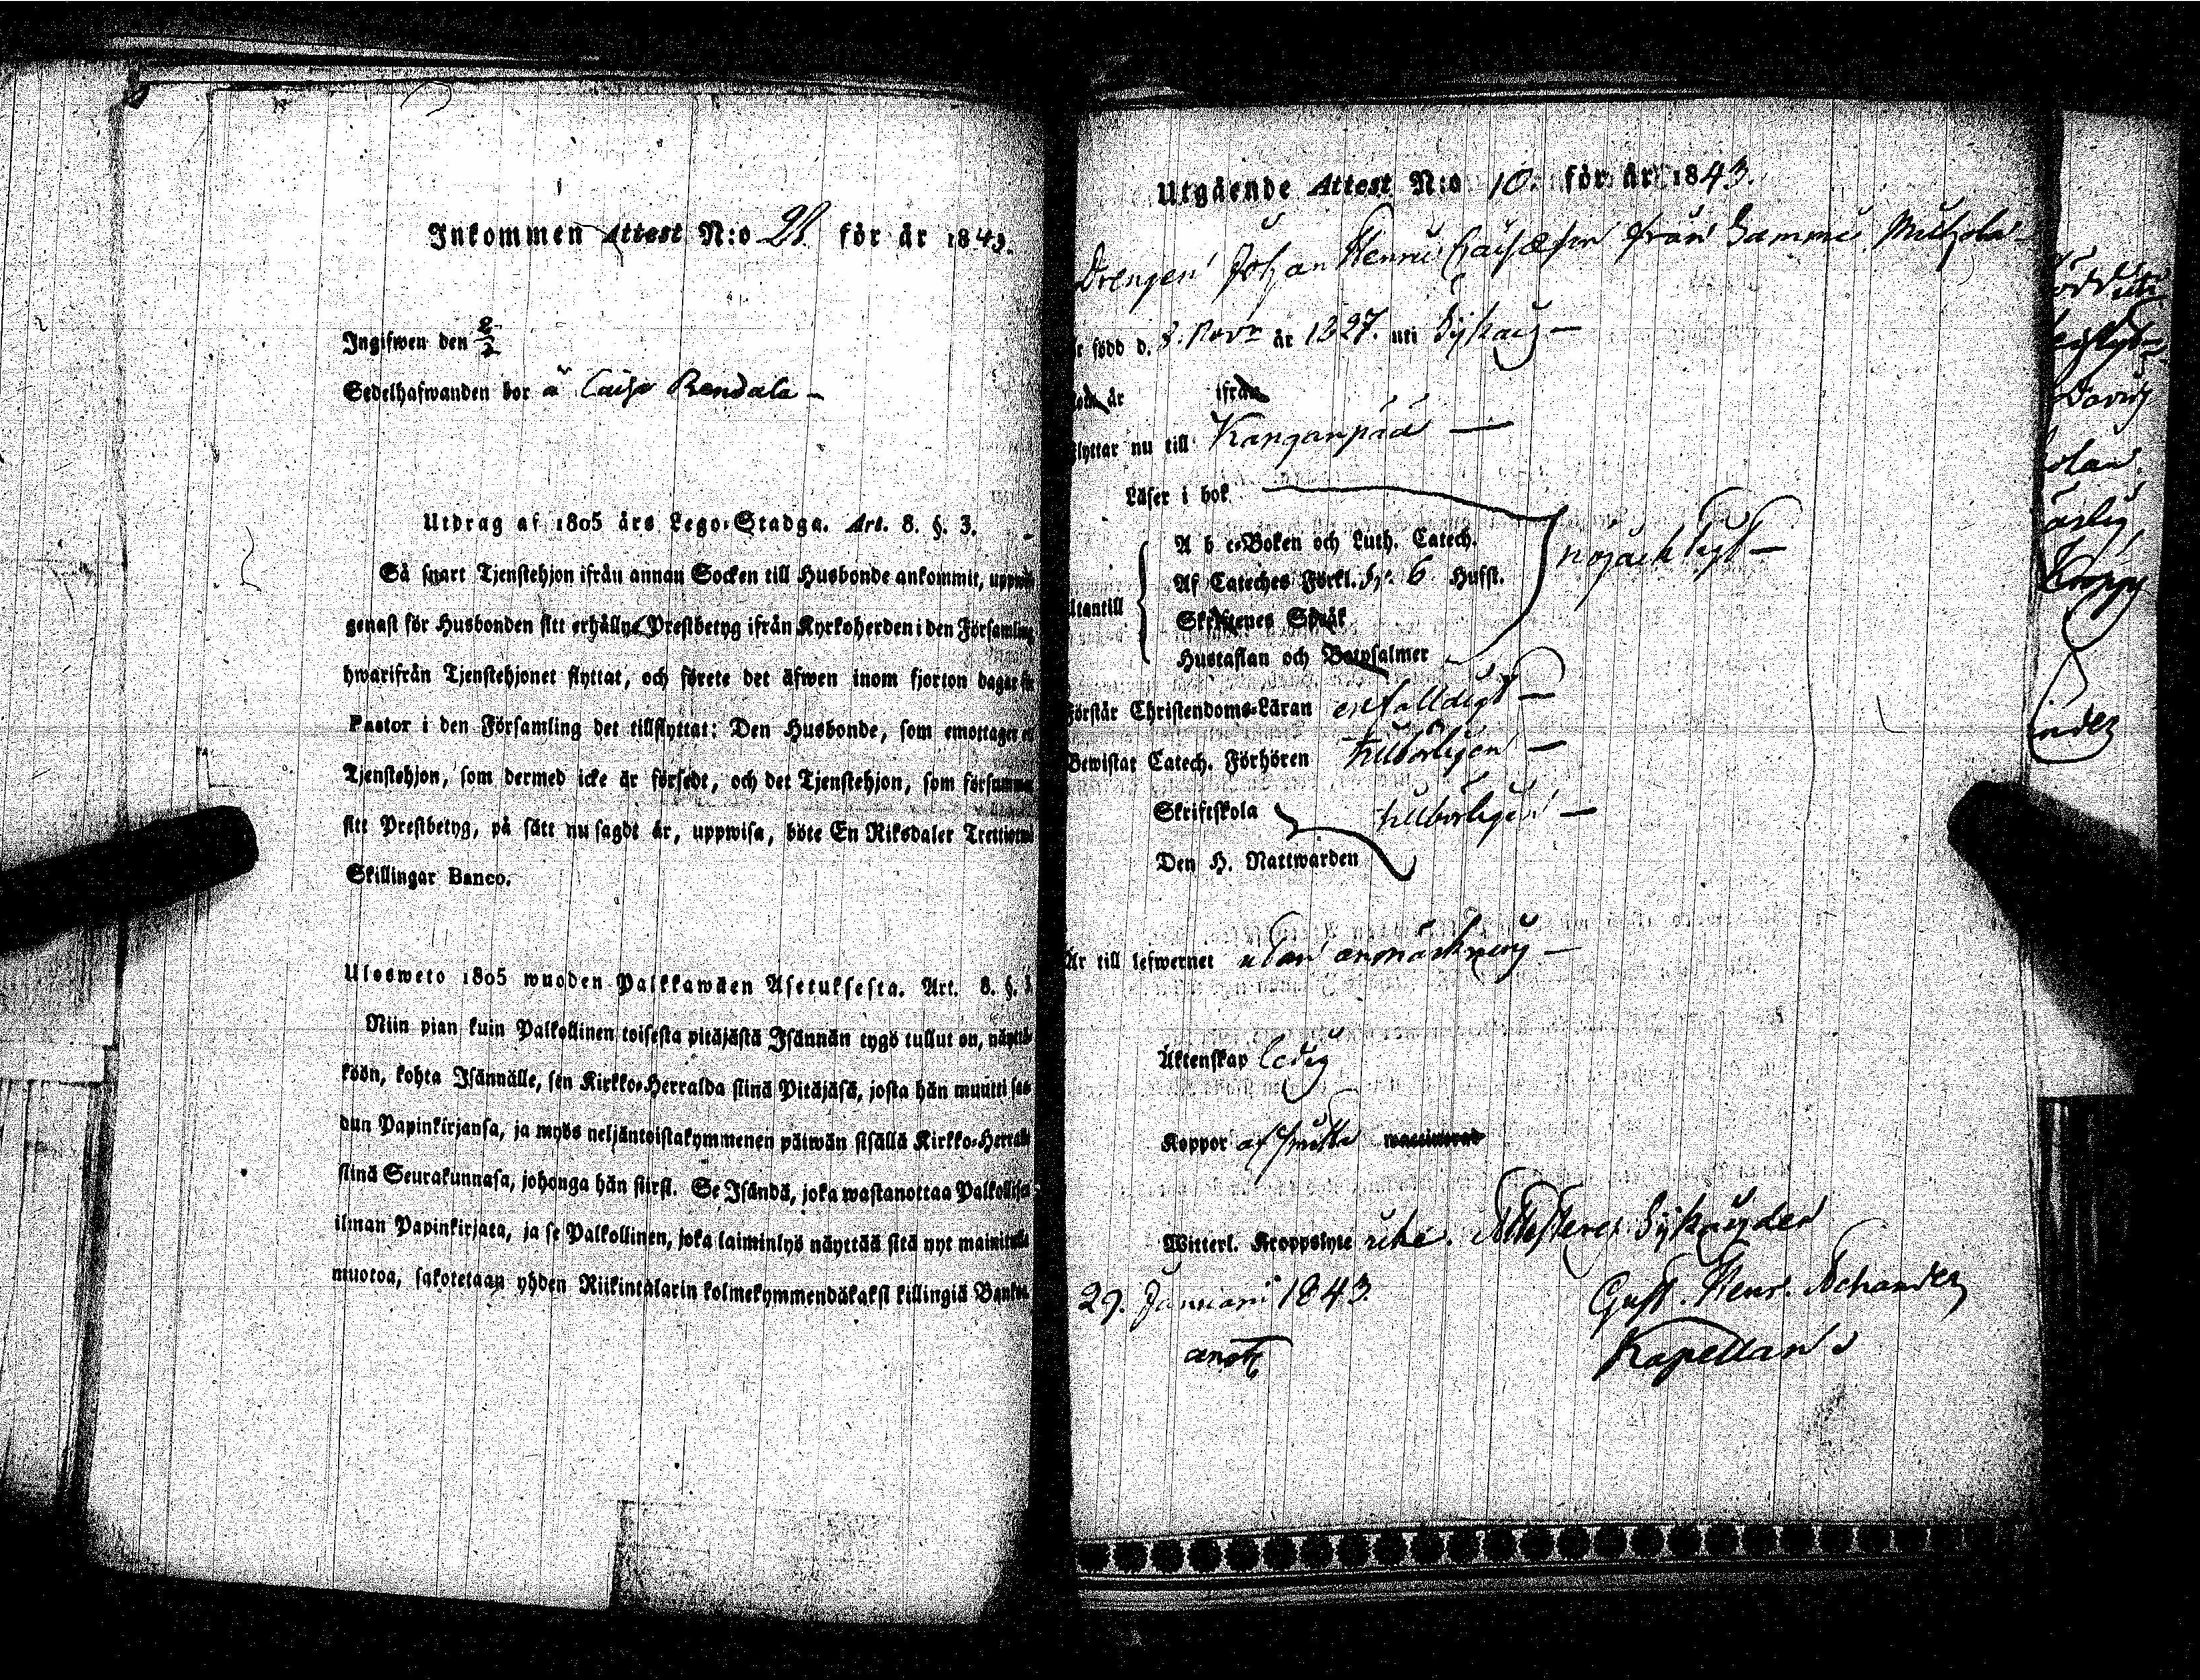 Inkommen Attest N:o 28. för år 1843.
Ingifwen den 2/2
Sedelhafwanden bor å Caisa Rendala
Utdrag af 1805 års Lego-Stadga. Art. 8. §. 3.
Så snart Tjenstehjon ifrån annan Socken till Husbonde ankommit,
genast för Husbonden sitt erhållne Prestbetyg ifrån Kyrkoherden i den Församling
hwarifrån Tjenstehjonet flyttat, och förete det äfwen inom fjorton dagar för
Pastor i den Församling det tillflyttat: Den Husbonde, som emottager
Tjenstehjon, som dermed icke är försedt, och det Tjenstehjon, som försummar
sitt Prestbetyg, på sätt nu sagdt är, uppwisa, böte En Riksdaler
Skillingar Banco.
Ulosweto 1805 wuoden Palkkawäen Asetuksesta. Art. 8. §. 3.
Niin pian kuin Palkollinen toisesta pitäjästä Isännän tygö tullut on, näyttä-
köön, kohta Isännälle, sen Kirkko-Herralda siinä Pitäjäsä, josta hän muutti saa-
dun Papinkirjansa, ja myös neljäntoistakymmenen päiwän sisällä Kirkko-Herralle
siinä Seurakunnasa, johonga hän siirsi. Se Isändä, joka wastanottaa Palkollisen
ilman Papinkirjata, ja se Palkollinen, joka laiminlyö näyttää sitä nyt mainitulla
muotoa, sakotetaan yhden Riikintalarin kolmekymmendäkaksi killingiä Bankos.
Utgående Attest N:o 10. för år 1843.
Drengen Johan Henric från Gammel
är född d. 3. Novr år 1827. uti Sijkais
år ifrån
flyttar nu till Kanganpää
Läser i bok
A b c-Boken och Luth. Catech. nöjachtigt
Af Cateches Förkl. 6 Hufst.
Utantill
Skriftenes Språk
Hustaflan och Botpsalmer
Förstår Christendoms-Läran enfalldigt
Bewistat Catech. Förhören tillbörligen
Skriftskola tillbörligen
Den H. Nattwarden
Är till lefwernet utan anmärkning
Äktenskap ledig
Koppor vaccinerad
Witterl. Kroppslyte icke. Attesteras Sijkais den
29. Januari 1843. Gust. Henr. Schander
Kapellan